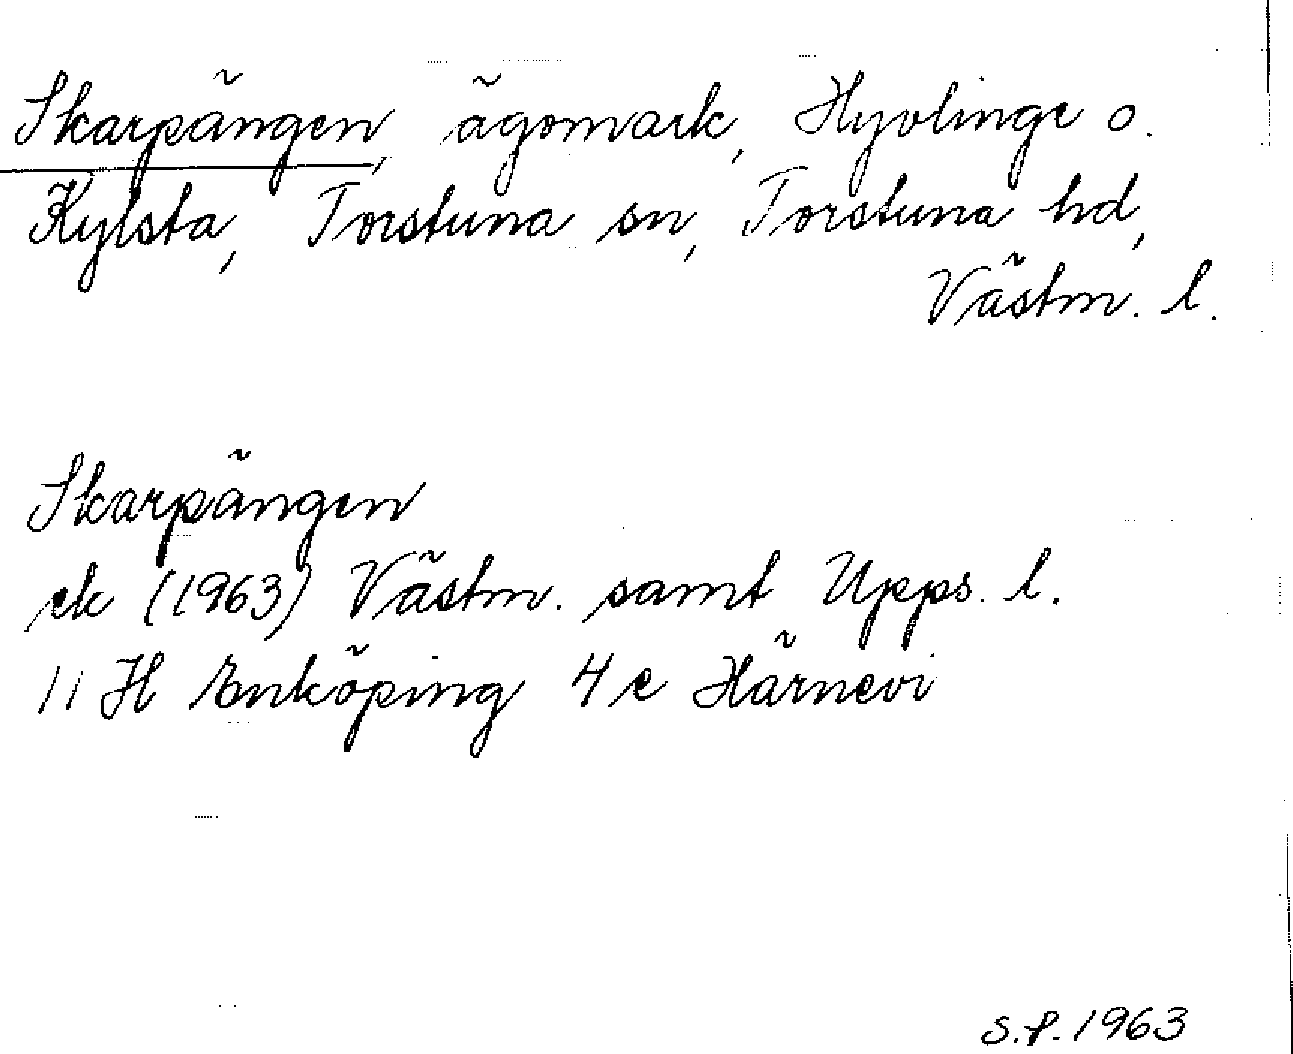 Skarpängen, ägomark, Hyvlinge o.
Kylsta, Torstuna sn, Torstuna hd,
Västm. l.
Skarpängen
ek (1963) Västm. samt Upps. l.
11 H Enköping 4 e Härnevi
S.P. 1963